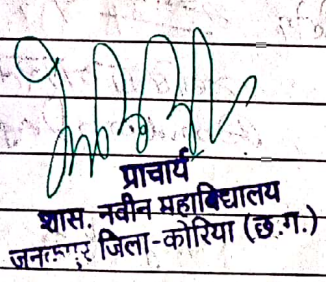 प्राचार्य
शास. नवीन महाविद्यालय
जिला-कोरिया (छ.ग.)